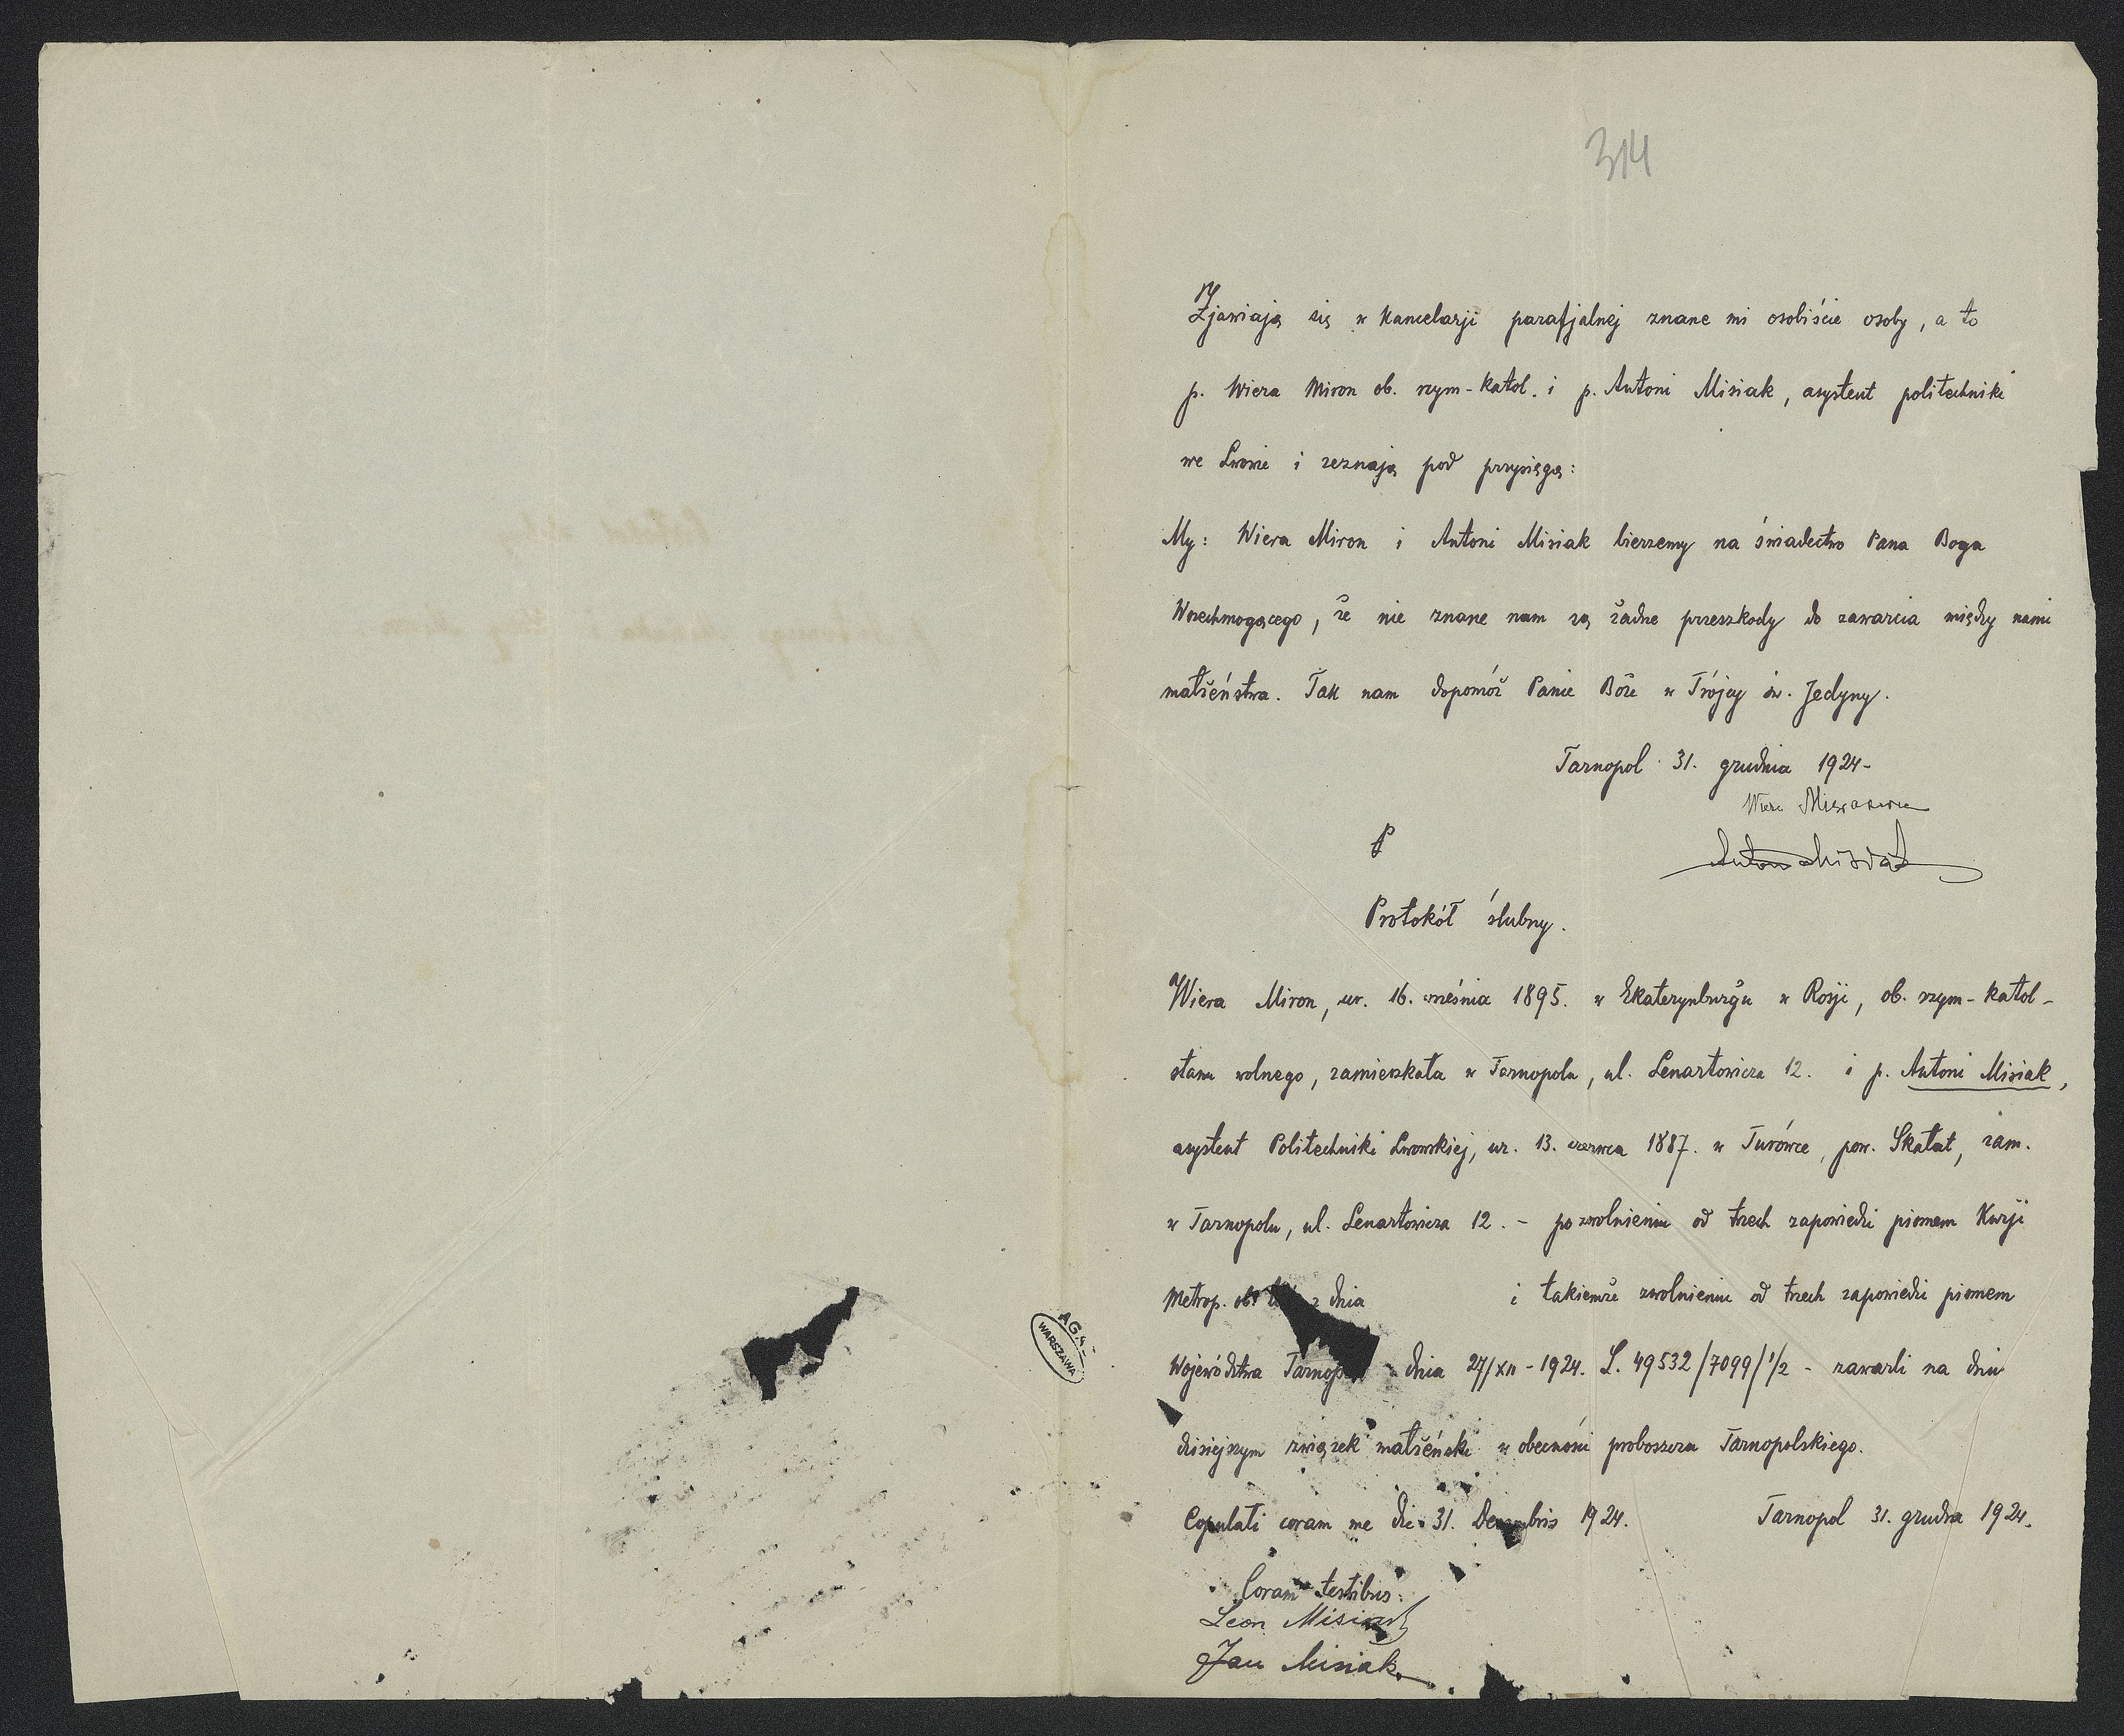 314
Zjawiają się w Kancelarji parafjalnej znane mi osobiście osoby, a to
p. Wiera Miron ob. rzym-katol. i p. Antoni Misiak, asystent politechniki
we Lwowie i zeznają pod przysięgą:
My: Wiera Miron i Antoni Misiak bierzemy na świadectwo Pana Boga
Wszechmogącego, że nie znane nam są żadne przeszkody do zawarcia między nami
małżeństwa. Tak nam dopomóż Panie Boże w Trójcy św. Jedyny.
Tarnopol 31. grudnia 1924-
Antoni Misiak
P
Protokół ślubny.
Wiera Miron, ur. 16. września 1895. w Ekaterynburgu w Rosji, ob. rzym-katol-
stanu wolnego, zamieszkała w Tarnopolu, ul. Lenartowicza 12. i p. Antoni Misiak,
asystent Politechniki Lwowskiej, ur. 13. czerwca 1887. w Turówce, pow. Skałat, zam.
w Tarnopolu, ul. Lenartowicza 12. - po zwolnieniu od trzech zapowiedzi pismem Kurji
Metrop. z dnia i takiemże zwolnieniu od trzech zapowiedzi pismem
Województwa dnia 27/XII-1924. L. 49532/7099/1/2 - zawarli na dniu
dzisiejszym związek małżeński w obecności proboszcza Tarnopolskiego.
Copulati coram me die 31. Decembris 1924. Tarnopol 31. grudnia 1924.
Coram testibus:
Leon Misiak
Jan Misiak
WARSZAWA